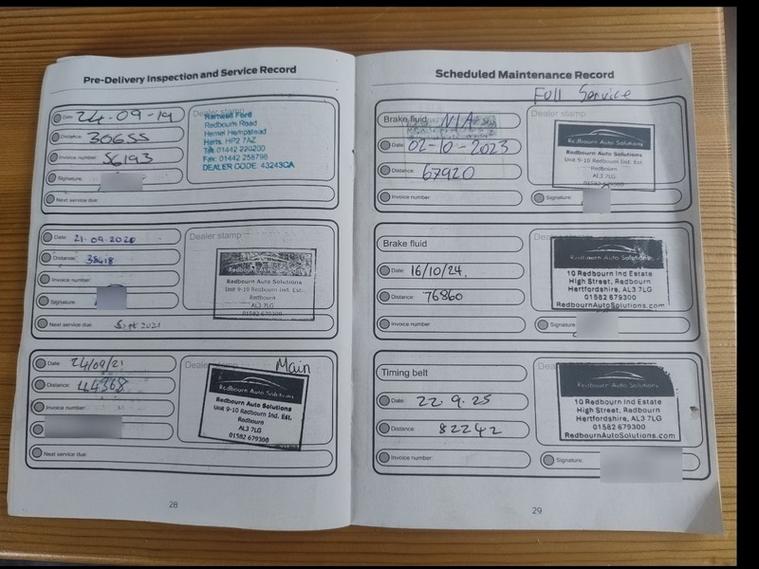 Pre-Delivery Inspection and Service Record
Date: 24-09-19
Distance: 30655
Invoice number: 56193
Signature:
Next service due:
Dealer stamp
Hartwell Ford
Redbourn Road
Hemel Hempstead
Herts. HP2 7AZ
Tel: 01442 220200
Fax: 01442 258798
DEALER CODE: 43243CA
Date: 21-09-2020
Distance:
Invoice number:
Signature:
Next service due: Sept 2021
Dealer stamp
Redbourn Auto Solutions
Unit 9-10 Redbourn Ind. Est.
Redbourn
AL3 7LG
01582 679300
Date: 24/09/21
Distance: 44368
Invoice number:
Next service due:
Main
Redbourn Auto Solutions
Redbourn Auto Solutions
Unit 9-10 Redbourn Ind. Est.
Redbourn
AL3 7LG
01582 679300
28
Scheduled Maintenance Record
Full Service
Brake fluid N/A
Date: 02-10-2023
Distance: 67920
Invoice number:
Signature:
Redbourn Auto Solutions
Redbourn Auto Solutions
Unit 9-10 Redbourn Ind. Est.
Redbourn
AL3 7LG
01582 679300
Brake fluid
Date: 16/10/24.
Distance: 76860
Invoice number:
Signature:
Redbourn Auto Solutions
10 Redbourn Ind Estate
High Street, Redbourn
Hertfordshire, AL3 7LG
01582 679300
RedbournAutoSolutions.com
Timing belt
Date: 22.9.25
Distance: 82242
Invoice number:
Signature:
Redbourn Auto Solutions
10 Redbourn Ind Estate
High Street, Redbourn
Hertfordshire, AL3 7LG
01582 679300
RedbournAutoSolutions.com
29